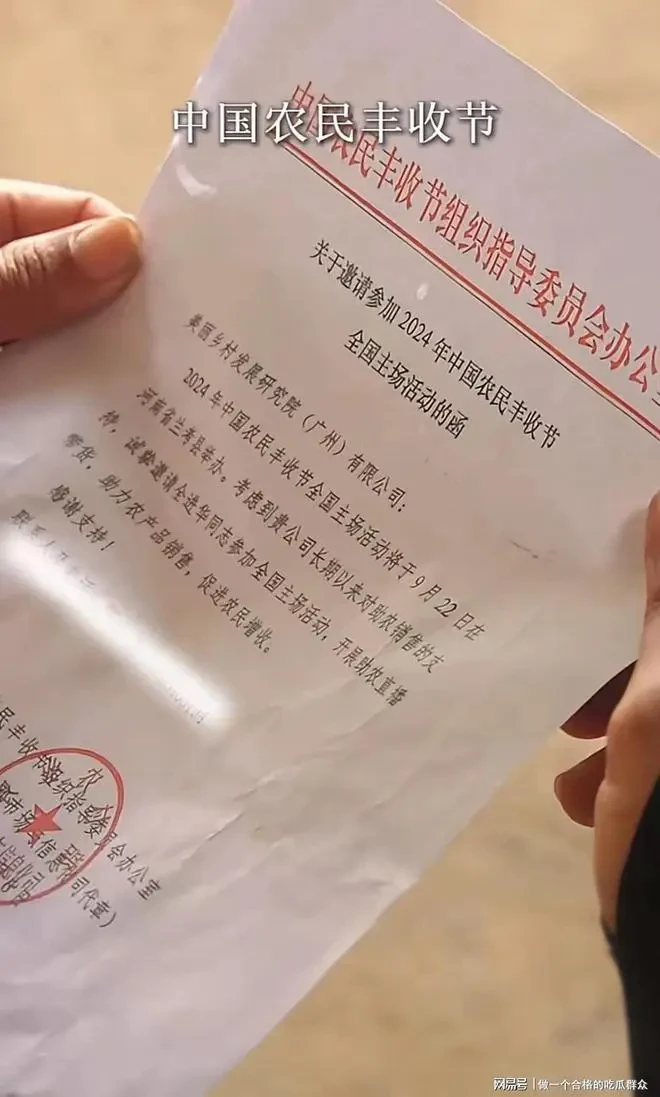 中国农民丰收节
中国农民丰收节组织指导委员会办公室
关于邀请参加2024年中国农民丰收节
全国主场活动的函
美丽乡村发展研究院（广州）有限公司：
2024年中国农民丰收节全国主场活动将于9月22日在
河南省兰考县举办。考虑到贵公司长期以来对助农销售的支
持，诚挚邀请全进华同志参加全国主场活动，开展助农直播
带货，助力农产品销售，促进农民增收。
感谢支持！
联系人及
民丰收节组织指导委员会办公室
市场与信息
司代章）
网易号 | 做一个合格的吃瓜群众